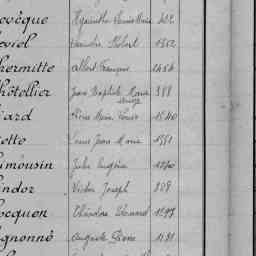 ovêque Hyacinthe Louis Marie 402
evrel Leandre Robert 1352
hermitte Albert François 1454
hôtellier Jean Baptiste Marie 398
ard Pierre Marie Louis 1540
otte Louis Jean Marie 1551
imousin Jules Eugène
indor Victor Joseph 809
ocquen Théodore Edouard 1597
gnonné Auguste Pierre 1191